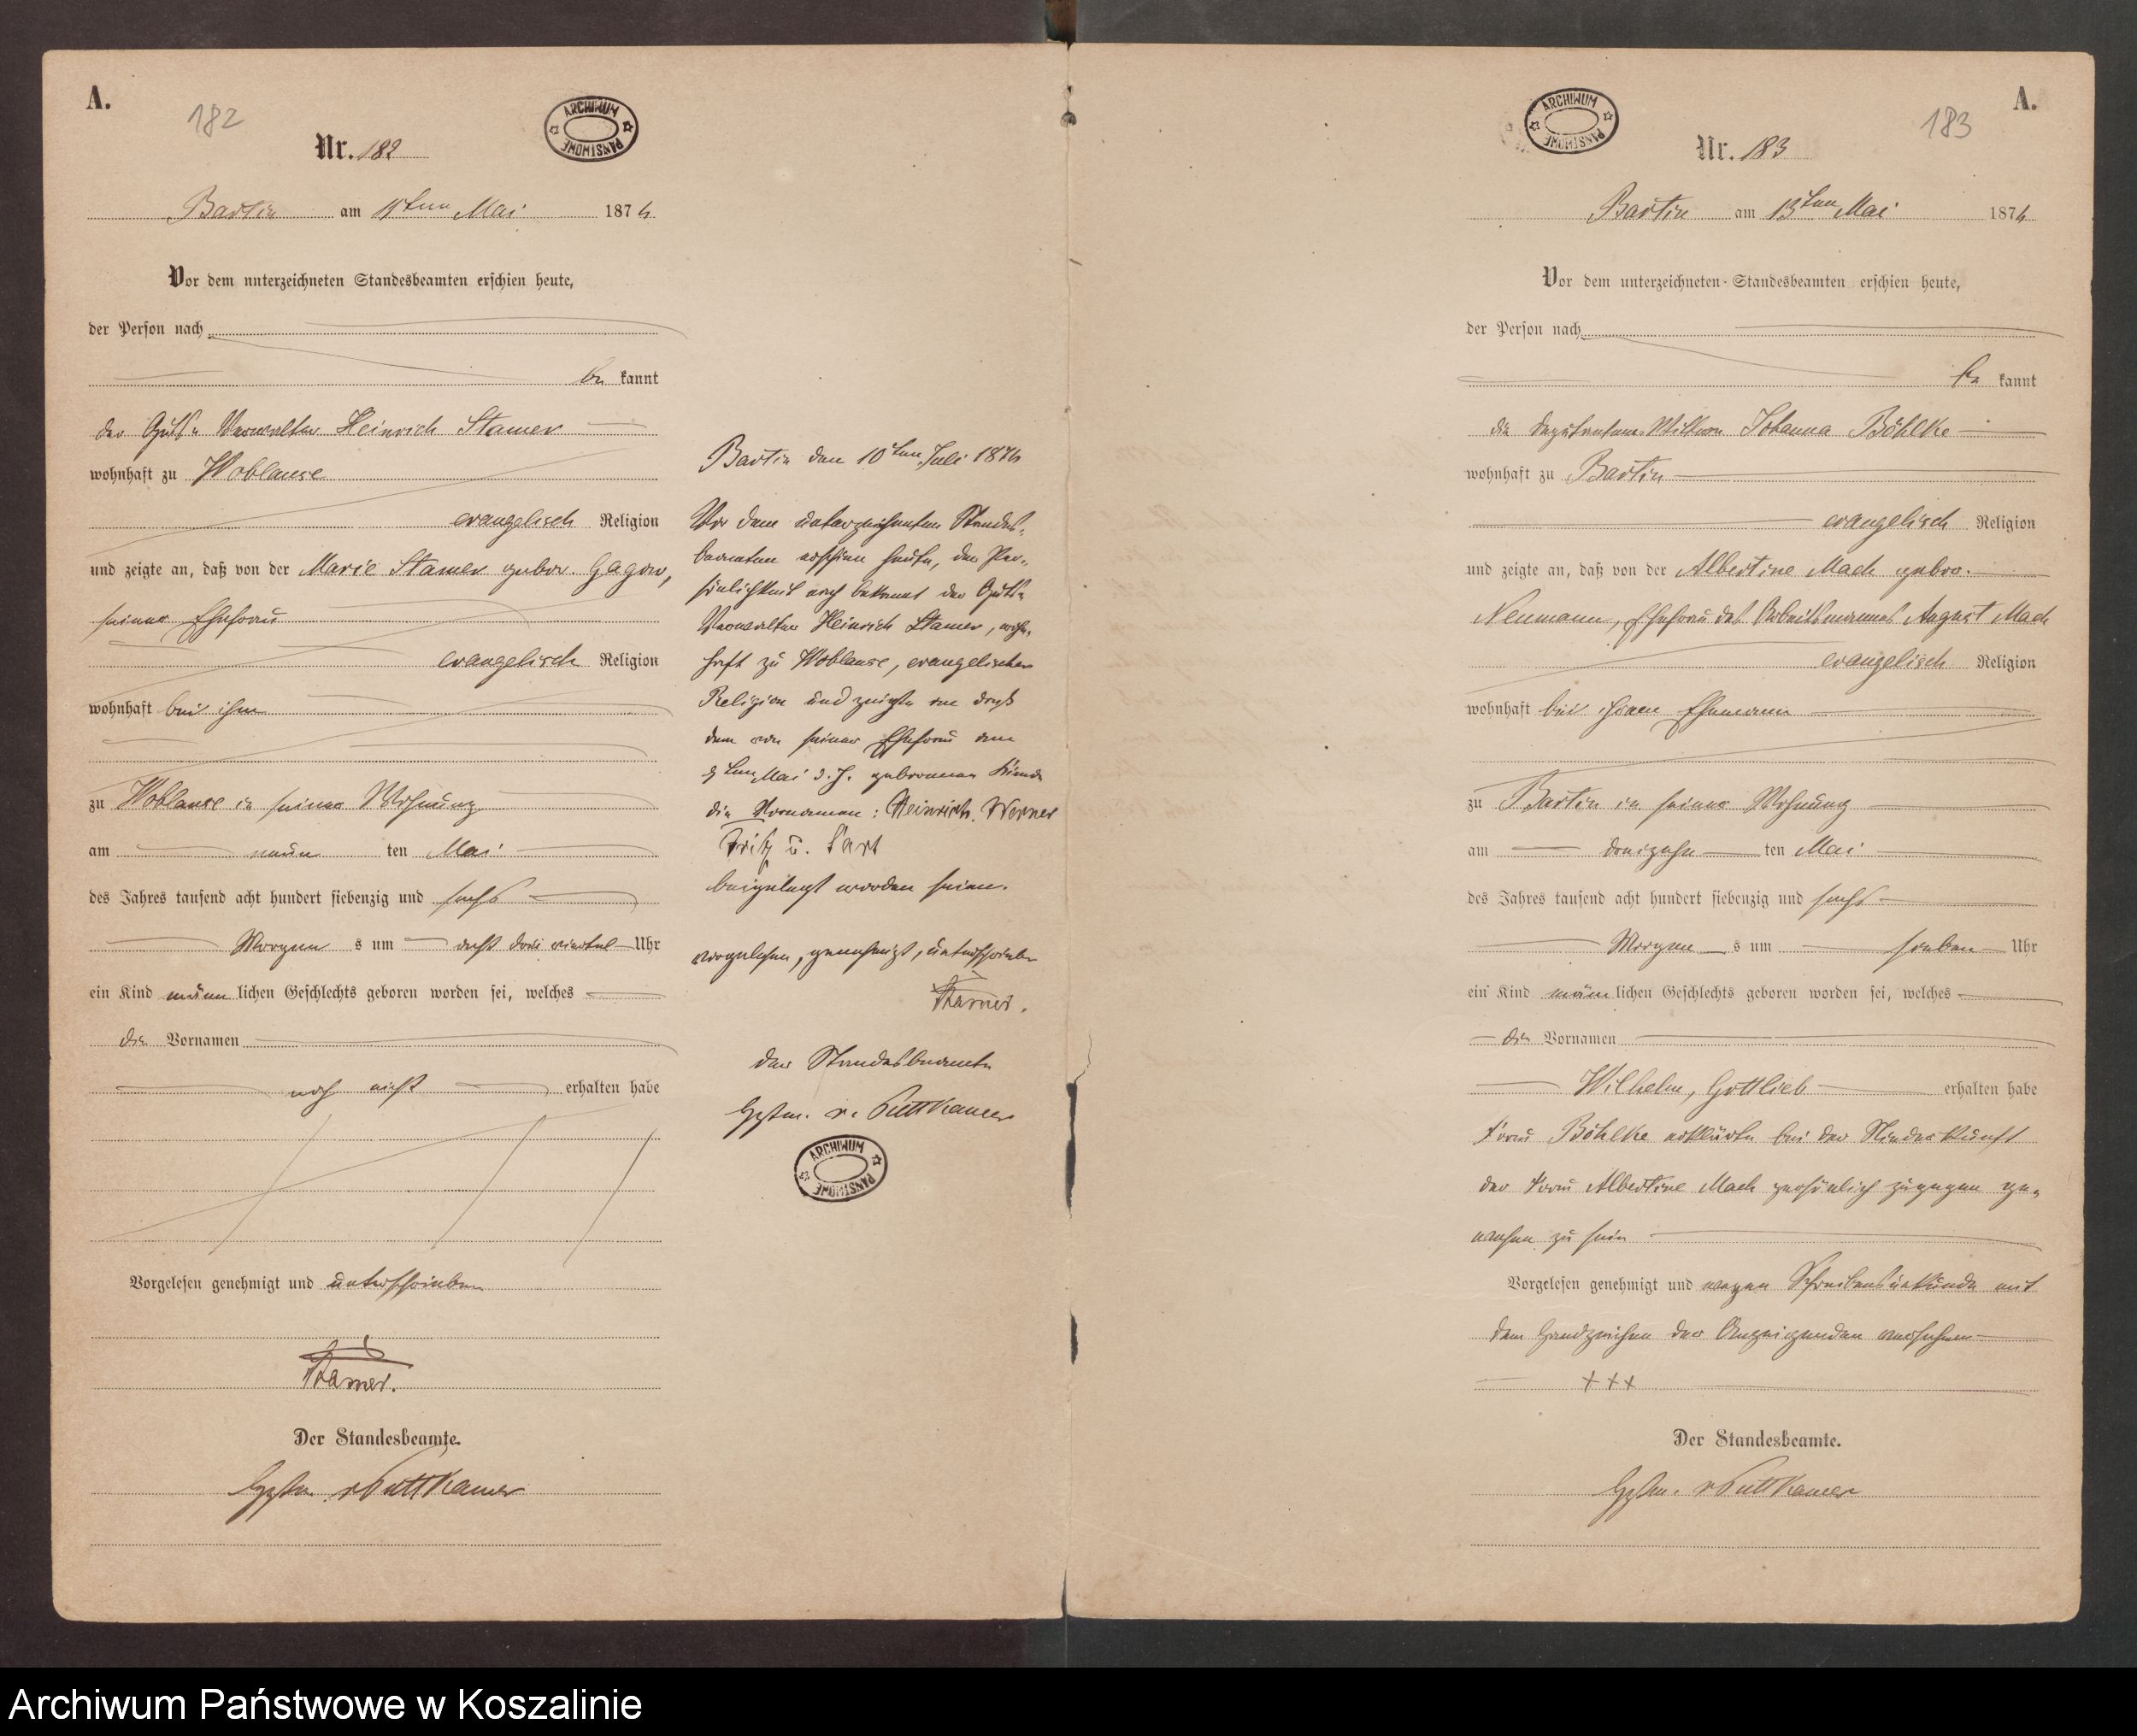 A.
182
ARCHIWUM PAŃSTWOWE
Nr. 182
Bartin am 11ten Mai 1876
Vor dem unterzeichneten Standesbeamten erschien heute,
der Person nach
be kannt
der Guts-Verwalter Heinrich Stamer
wohnhaft zu Woblanse
evangelisch Religion
und zeigte an, daß von der Marie Stamer gebor. Gagow,
seiner Ehefrau
evangelisch Religion
wohnhaft bei ihm
zu Woblanse in seiner Wohnung
am neun ten Mai
des Jahres tausend acht hundert siebenzig und sechs
Morgen s um acht drei viertel Uhr
ein Kind männ lichen Geschlechts geboren worden sei, welches
die Vornamen
noch nicht erhalten habe
Vorgelesen genehmigt und unterschrieben
Stamer.
Der Standesbeamte.
v Puttkamer
Bartin den 10ten Juli 1876
Vor dem unterzeichneten Standes-
beamten erschien heute, der Per-
sönlichkeit nach bekannt der Guts-
Verwalter Heinrich Stamer, wohn-
haft zu Woblanse, evangelischer
Religion und zeigte an daß
dem von seiner Ehefrau am
9ten Mai d. J. geborenen Kinde
die Vornamen: Heinrich. Werner
Fritz u. Cart
beigelegt worden seien.
vorgelesen, genehmigt, unterschrieben
Stamer.
Der Standesbeamte
v. Puttkamer
ARCHIWUM PAŃSTWOWE
A.
183
ARCHIWUM PAŃSTWOWE
Nr. 183
Bartin am 13ten Mai 1876
Vor dem unterzeichneten Standesbeamten erschien heute,
der Person nach
be kannt
die Deputanten-Wittwe Johanna Böhlke
wohnhaft zu Bartin
evangelisch Religion
und zeigte an, daß von der Albertine Mach gebor.
Neumann, Ehefrau des Arbeitsmannes August Mach
evangelisch Religion
wohnhaft bei ihrem Ehemann
zu Bartin in seiner Wohnung
am dreizehn ten Mai
des Jahres tausend acht hundert siebenzig und sechs
Morgen s um sieben Uhr
ein Kind männ lichen Geschlechts geboren worden sei, welches
die Vornamen
Wilhelm, Gottlieb erhalten habe
Frau Böhlke erklärte bei der Niederkunft
der Frau Albertine Mach persönlich zugegen ge-
wesen zu sein
Vorgelesen genehmigt und wegen Schreibensunkunde mit
dem Handzeichen der Anzeigenden versehen
+++
Der Standesbeamte.
v Puttkamer
Archiwum Państwowe w Koszalinie